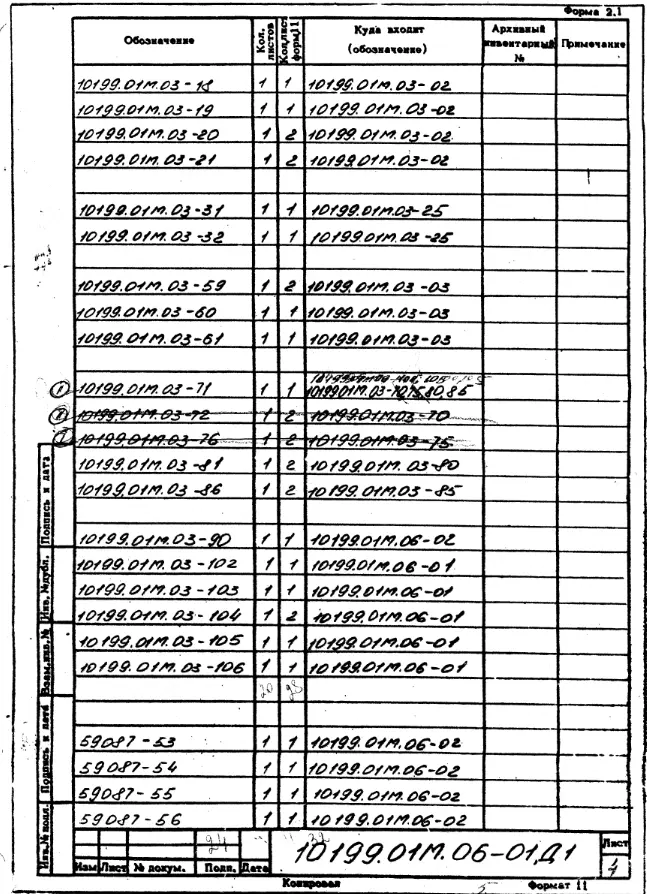 Форма 2.1
Обозначение Кол. листов Кол.лист. форм.11 Куда входит (обозначение) Архивный инвентарный № Примечание
10199.01М.03-18 1 1 10199.01М.03-02
10199.01М.03-19 1 1 10199.01М.03-02
10199.01М.03-20 1 2 10199.01М.03-02
10199.01М.03-21 1 2 10199.01М.03-02
10199.01М.03-31 1 1 10199.01М.03-25
10199.01М.03-32 1 1 10199.01М.03-25
10199.01М.03-59 1 2 10199.01М.03-03
10199.01М.03-60 1 1 10199.01М.03-03
10199.01М.03-61 1 1 10199.01М.03-03
1 10199.01М.03-71 1 1 10199.01М.03-70,75,80,85
10199.01М.03-72 1 2 10199.01М.03-70
10199.01М.03-76 1 2 10199.01М.03-75
10199.01М.03-81 1 2 10199.01М.03-80
10199.01М.03-86 1 2 10199.01М.03-85
10199.01М.03-90 1 1 10199.01М.06-02
10199.01М.03-102 1 1 10199.01М.06-01
10199.01М.03-103 1 1 10199.01М.06-01
10199.01М.03-104 1 2 10199.01М.06-01
10199.01М.03-105 1 1 10199.01М.06-01
10199.01М.03-106 1 1 10199.01М.06-01
20 28
59087-53 1 1 10199.01М.06-02
59087-54 1 1 10199.01М.06-02
59087-55 1 1 10199.01М.06-02
59087-56 1 1 10199.01М.06-02
24 32
Подпись и дата
Инв.№дубл.
Взам.инв.№
Подпись и дата
Инв.№ подл.
Изм Лист № докум. Подп. Дата
10199.01М.06-01Д1
Лист
4
Копировал Формат 11